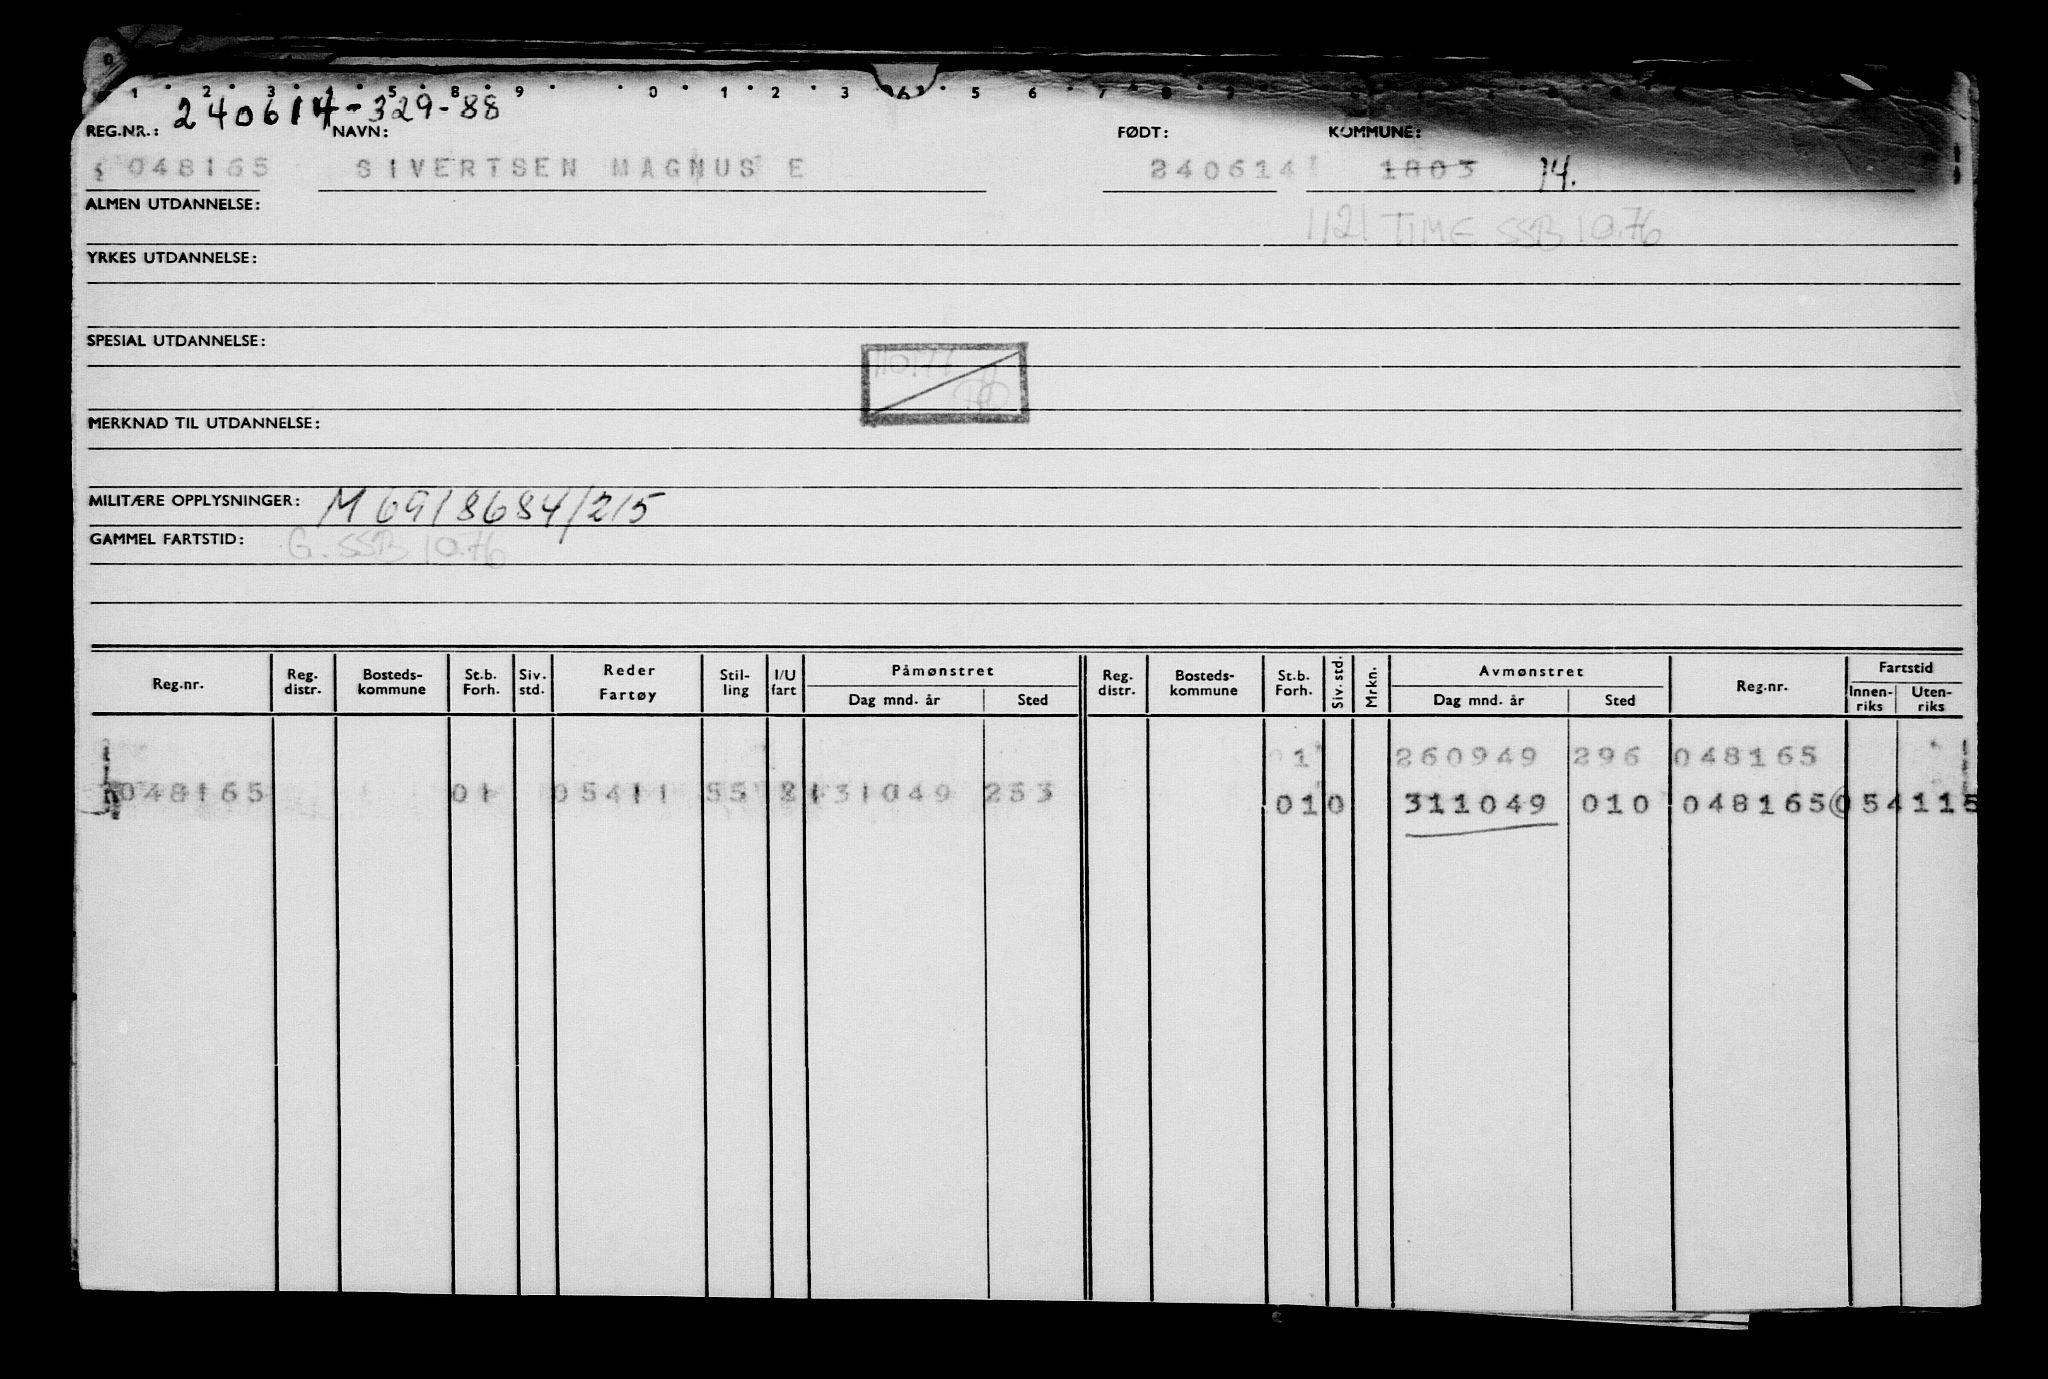 0
1 2 3 4 5 8 9 0 1 2 3 6 5 6 7 8 9
240614-329-88
REG.NR.: NAVN: FØDT: KOMMUNE:
048165 SIVERTSEN MAGNUS E 240614 1803 14.
ALMEN UTDANNELSE: 1121 TIME SSB 10.76
YRKES UTDANNELSE:
SPESIAL UTDANNELSE:
MERKNAD TIL UTDANNELSE:
MILITÆRE OPPLYSNINGER: M 6918684/215
GAMMEL FARTSTID: G. SSB 10.76
Reg.nr. Reg. distr. Bosteds-kommune St.b. Forh. Siv. std. Reder Fartøy Stil-ling I/U fart Påmønstret Dag mnd. år Sted Reg. distr. Bosteds-kommune St.b. Forh. Siv. std. Mrkn. Avmønstret Dag mnd. år Sted Reg.nr. Fartstid Innen-riks Uten-riks
1 260949 296 048165
048165 01 05411 55 2 131049 253
010 311049 010 048165 054115